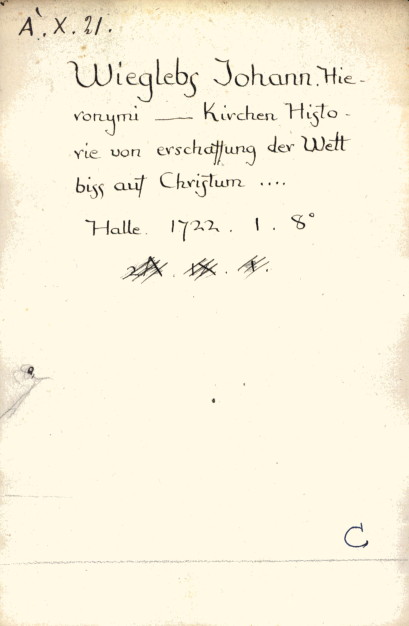 A. X. 21.
Wieglebs Johann. Hie-
ronymi — Kirchen Histo-
rie von erschaffung der Welt
biss auf Christum ....
Halle. 1722. 1. 8°
C